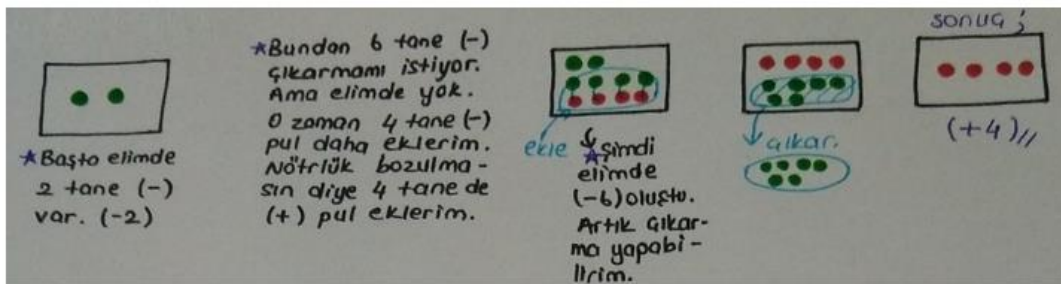 ★Başta elimde
2 tane (-)
var. (-2)
★Bundan 6 tane (-)
çıkarmamı istiyor.
Ama elimde yok.
O zaman 4 tane (-)
pul daha eklerim.
Nötrlük bozulma-
sın diye 4 tane de
(+) pul eklerim.
ekle
★Şimdi
elimde
(-6) oluştu.
Artık çıkar-
ma yapabi-
lirim.
çıkar.
sonuç;
(+4)//